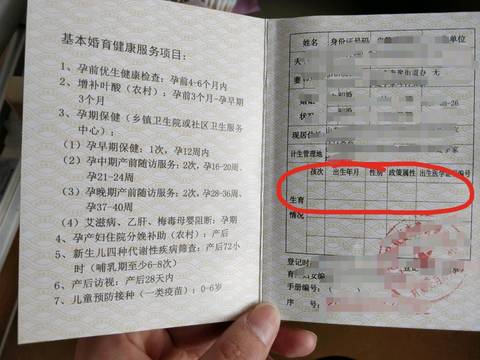 基本婚育健康服务项目：
1、孕前优生健康检查：孕前4-6个月内
2、增补叶酸（农村）：孕前3个月-孕早期
3个月
3、孕期保健（乡镇卫生院或社区卫生服务
中心）：
（1）孕早期保健：1次，孕12周内
（2）孕中期产前随访服务：2次，孕16-20周、
孕21-24周
（3）孕晚期产前随访服务：2次，孕28-36周、
孕37-40周
（4）艾滋病、乙肝、梅毒母婴阻断：孕期
4、孕产妇住院分娩补助（农村）：产后
5、新生儿四种代谢性疾病筛查：产后72小
时（哺乳期至少6-8次）
6、产后访视：产后28天内
7、儿童预防接种（一类疫苗）：0-6岁
姓名 身份证号码 单位
夫
妻 街道办 无
婚姻 -26
状
现居住
计生管理地
孩次 出生年月 性别 政策属性 出生医学证 编号
生育
情况
登记时
育 妇女编
手册编号
序 号：